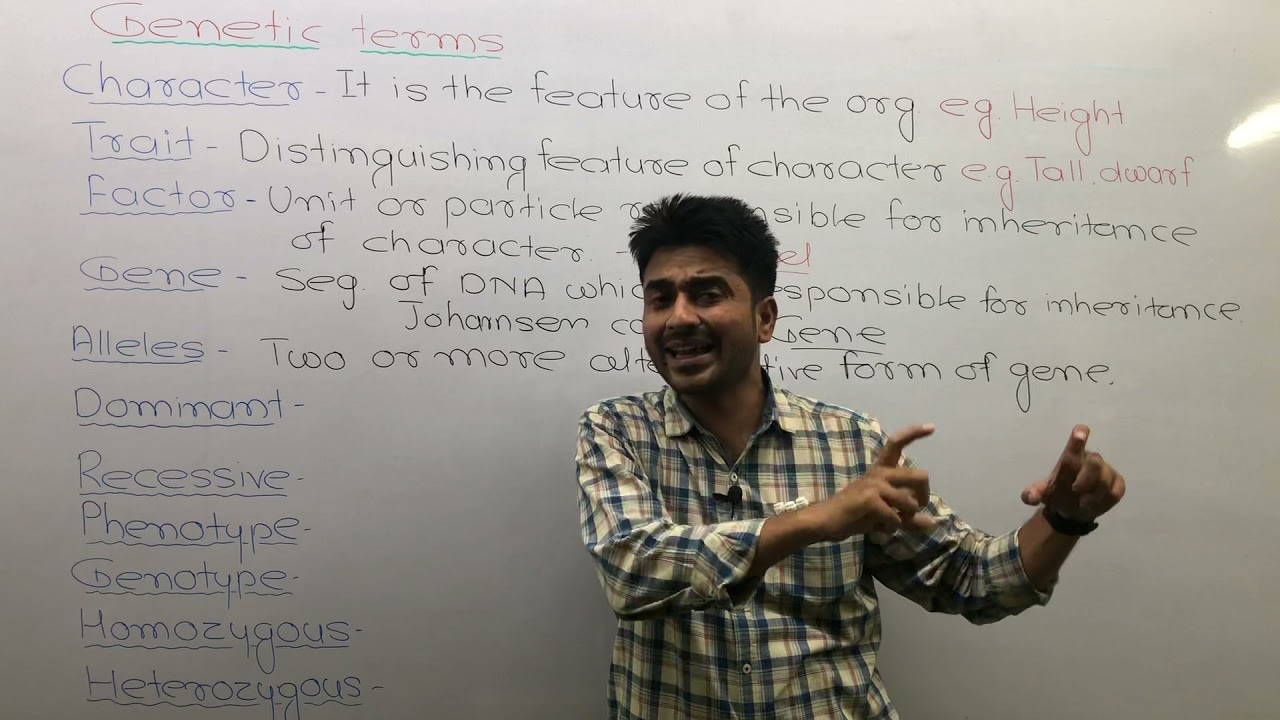 Genetic terms
Character - It is the feature of the org. eg. Height
Trait - Distinguishing feature of character e.g. Tall, dwarf
Factor - Unit or particle for inheritance
of character. -
Gene - Seg. of DNA for inheritance.
Johannsen Gene
Alleles - Two or more form of gene.
Dominant -
Recessive -
Phenotype -
Genotype -
Homozygous -
Heterozygous -